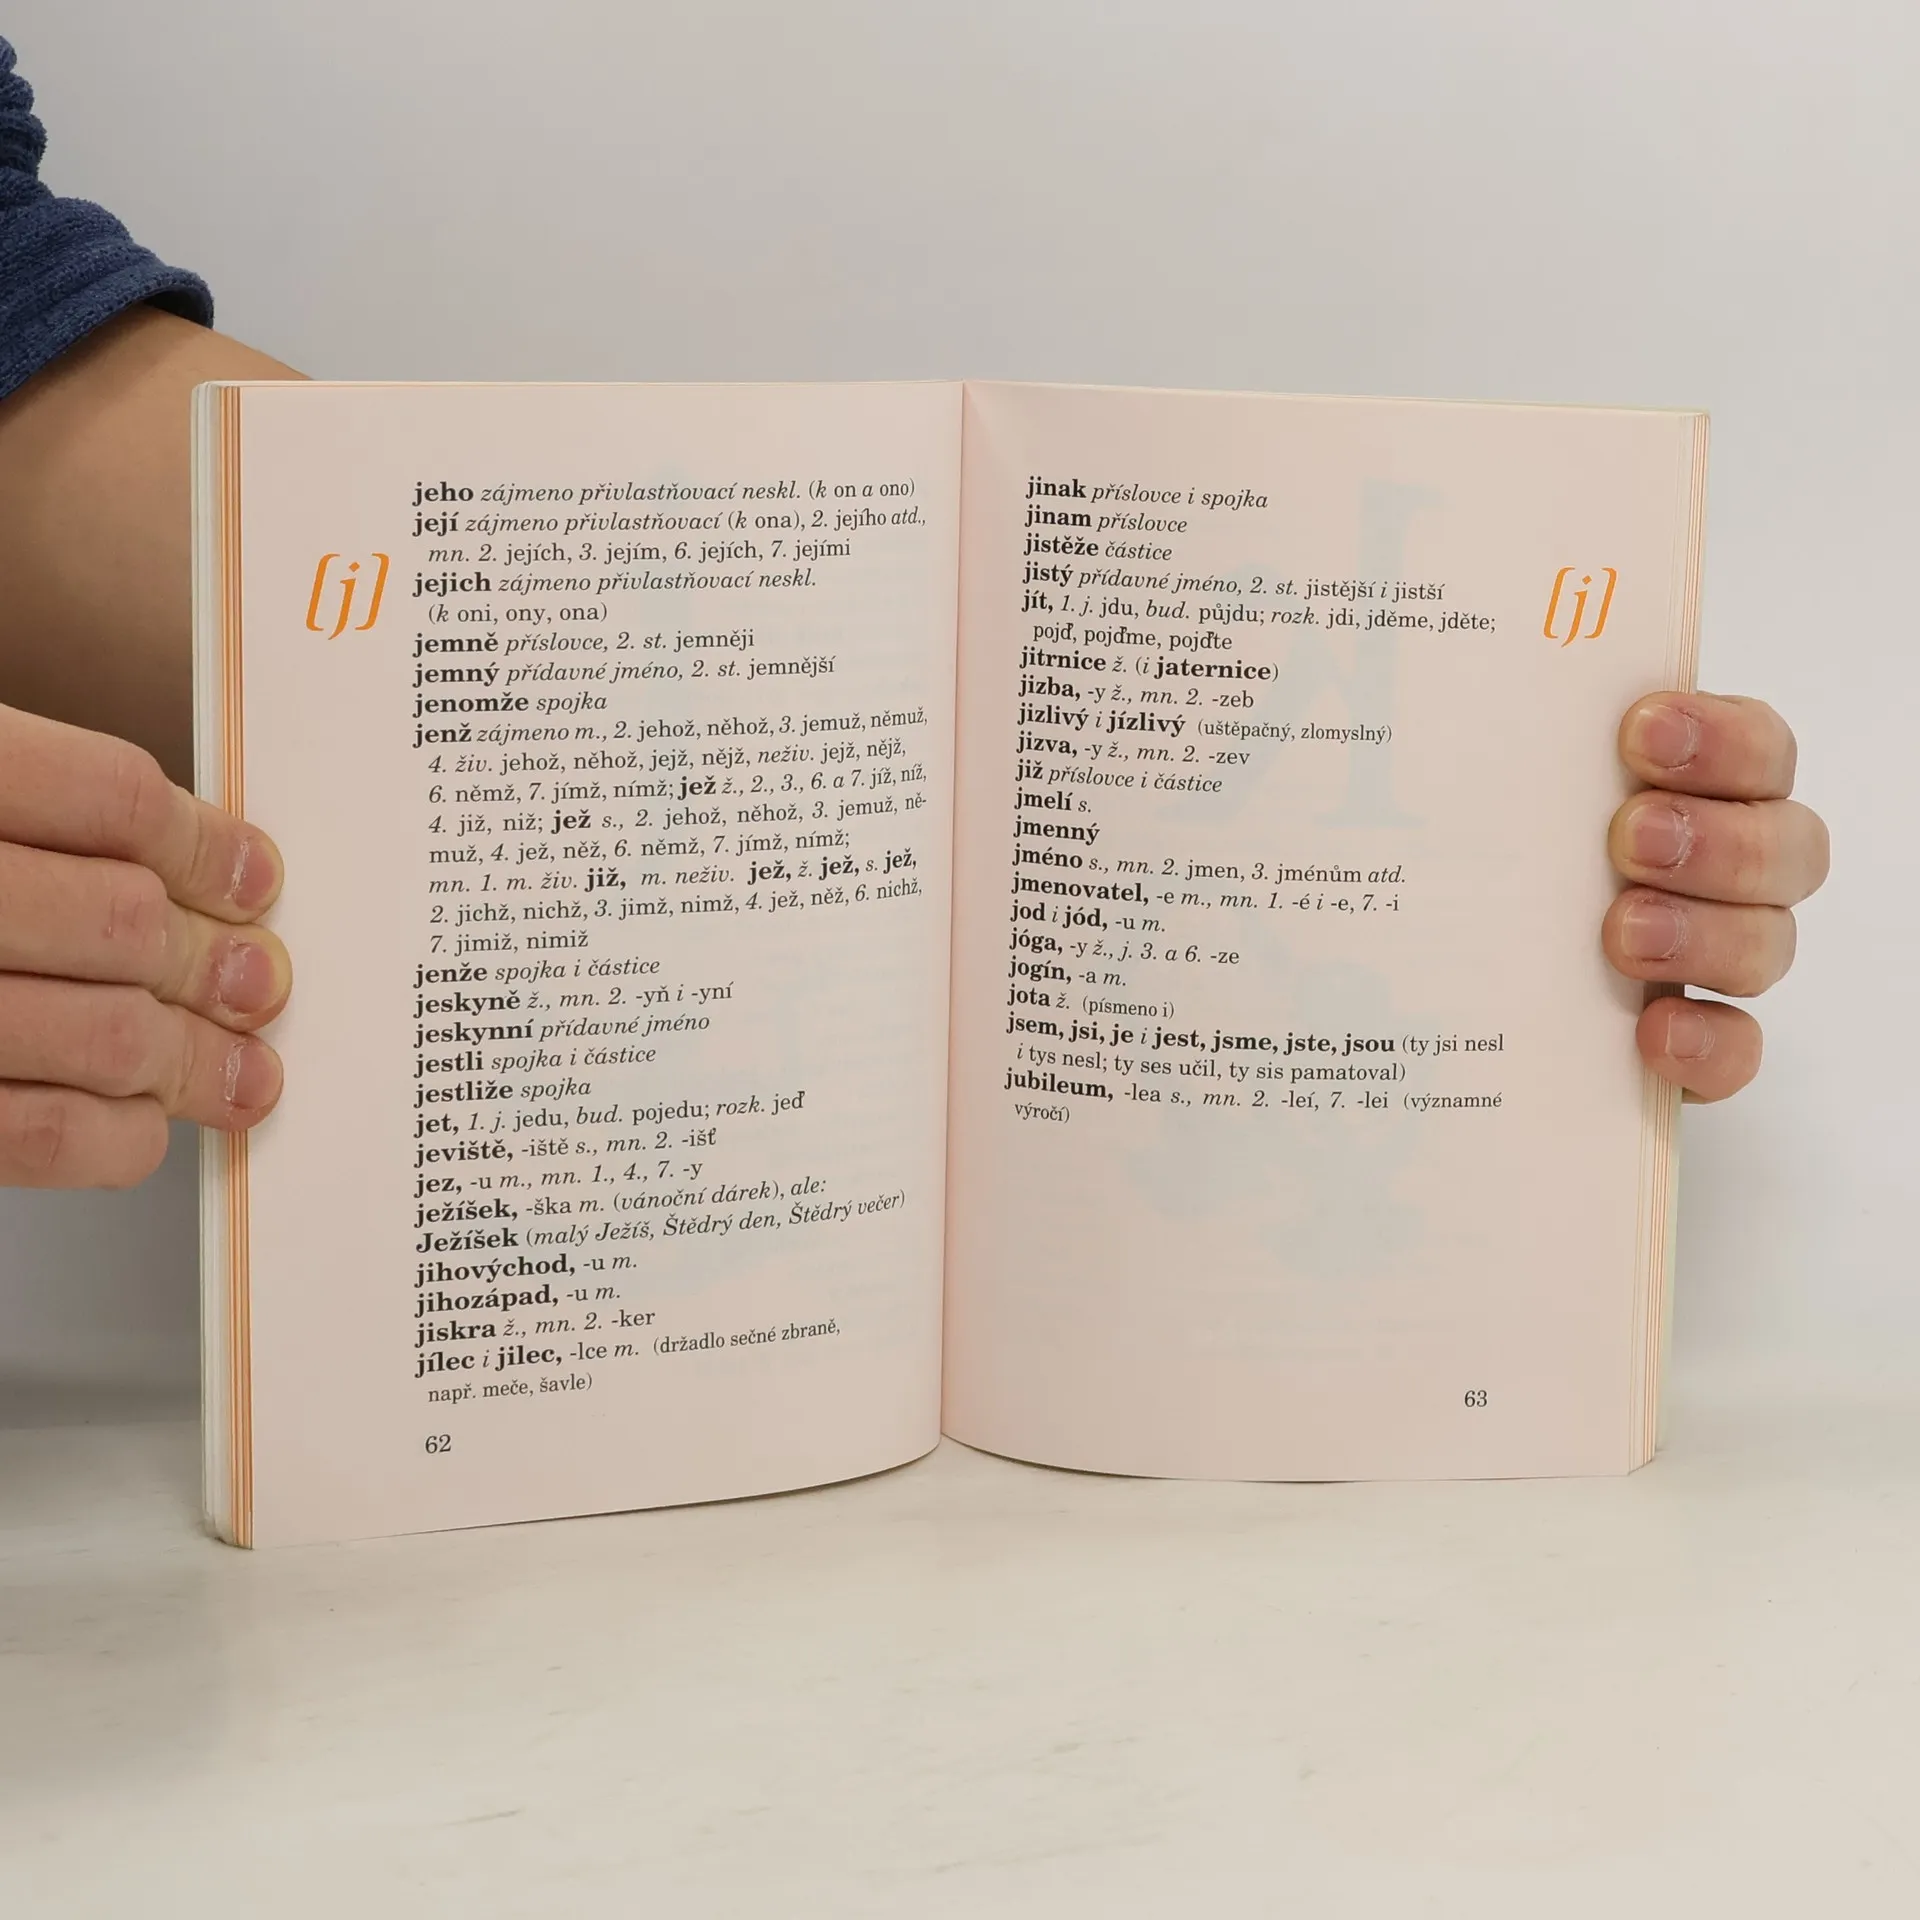 (j)
jeho zájmeno přivlastňovací neskl. (k on a ono)
její zájmeno přivlastňovací (k ona), 2. jejího atd.,
mn. 2. jejích, 3. jejím, 6. jejích, 7. jejími
jejich zájmeno přivlastňovací neskl.
(k oni, ony, ona)
jemně příslovce, 2. st. jemněji
jemný přídavné jméno, 2. st. jemnější
jenomže spojka
jenž zájmeno m., 2. jehož, něhož, 3. jemuž, němuž,
4. živ. jehož, něhož, jejž, nějž, neživ. jejž, nějž,
6. němž, 7. jímž, nímž; jež ž., 2., 3., 6. a 7. jíž, níž,
4. již, niž; jež s., 2. jehož, něhož, 3. jemuž, ně-
muž, 4. jež, něž, 6. němž, 7. jímž, nímž;
mn. 1. m. živ. již, m. neživ. jež, ž. jež, s. jež,
2. jichž, nichž, 3. jimž, nimž, 4. jež, něž, 6. nichž,
7. jimiž, nimiž
jenže spojka i částice
jeskyně ž., mn. 2. -yň i -yní
jeskynní přídavné jméno
jestli spojka i částice
jestliže spojka
jet, 1. j. jedu, bud. pojedu; rozk. jeď
jeviště, -iště s., mn. 2. -išť
jez, -u m., mn. 1., 4., 7. -y
ježíšek, -ška m. (vánoční dárek), ale:
Ježíšek (malý Ježíš, Štědrý den, Štědrý večer)
jihovýchod, -u m.
jihozápad, -u m.
jiskra ž., mn. 2. -ker
jílec i jilec, -lce m. (držadlo sečné zbraně,
např. meče, šavle)
62
jinak příslovce i spojka
jinam příslovce
jistěže částice
jistý přídavné jméno, 2. st. jistější i jistší
jít, 1. j. jdu, bud. půjdu; rozk. jdi, jděme, jděte;
pojď, pojďme, pojďte
jitrnice ž. (i jaternice)
jizba, -y ž., mn. 2. -zeb
jizlivý i jízlivý (uštěpačný, zlomyslný)
jizva, -y ž., mn. 2. -zev
již příslovce i částice
jmelí s.
jmenný
jméno s., mn. 2. jmen, 3. jménům atd.
jmenovatel, -e m., mn. 1. -é i -e, 7. -i
jod i jód, -u m.
jóga, -y ž., j. 3. a 6. -ze
jogín, -a m.
jota ž. (písmeno i)
jsem, jsi, je i jest, jsme, jste, jsou (ty jsi nesl
i tys nesl; ty ses učil, ty sis pamatoval)
jubileum, -lea s., mn. 2. -leí, 7. -lei (významné
výročí)
(j)
63